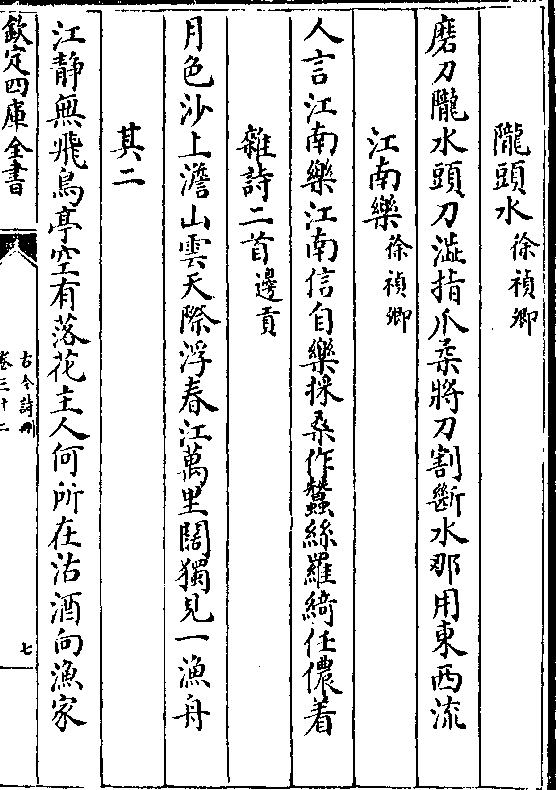 隴頭水徐禎卿
磨刀隴水頭刀澁指爪柔將刀割斷水那用東西流
江南樂徐禎卿
人言江南樂江南信自樂採桑作蠶絲羅綺任儂着
雜詩二首邊貢
月色沙上澹山雲天際浮春江萬里闊獨見一漁舟
其二
江静無飛鳥亭空有落花主人何所在沽酒向漁家
欽定四庫全書
古今詩刪
卷三十二
七